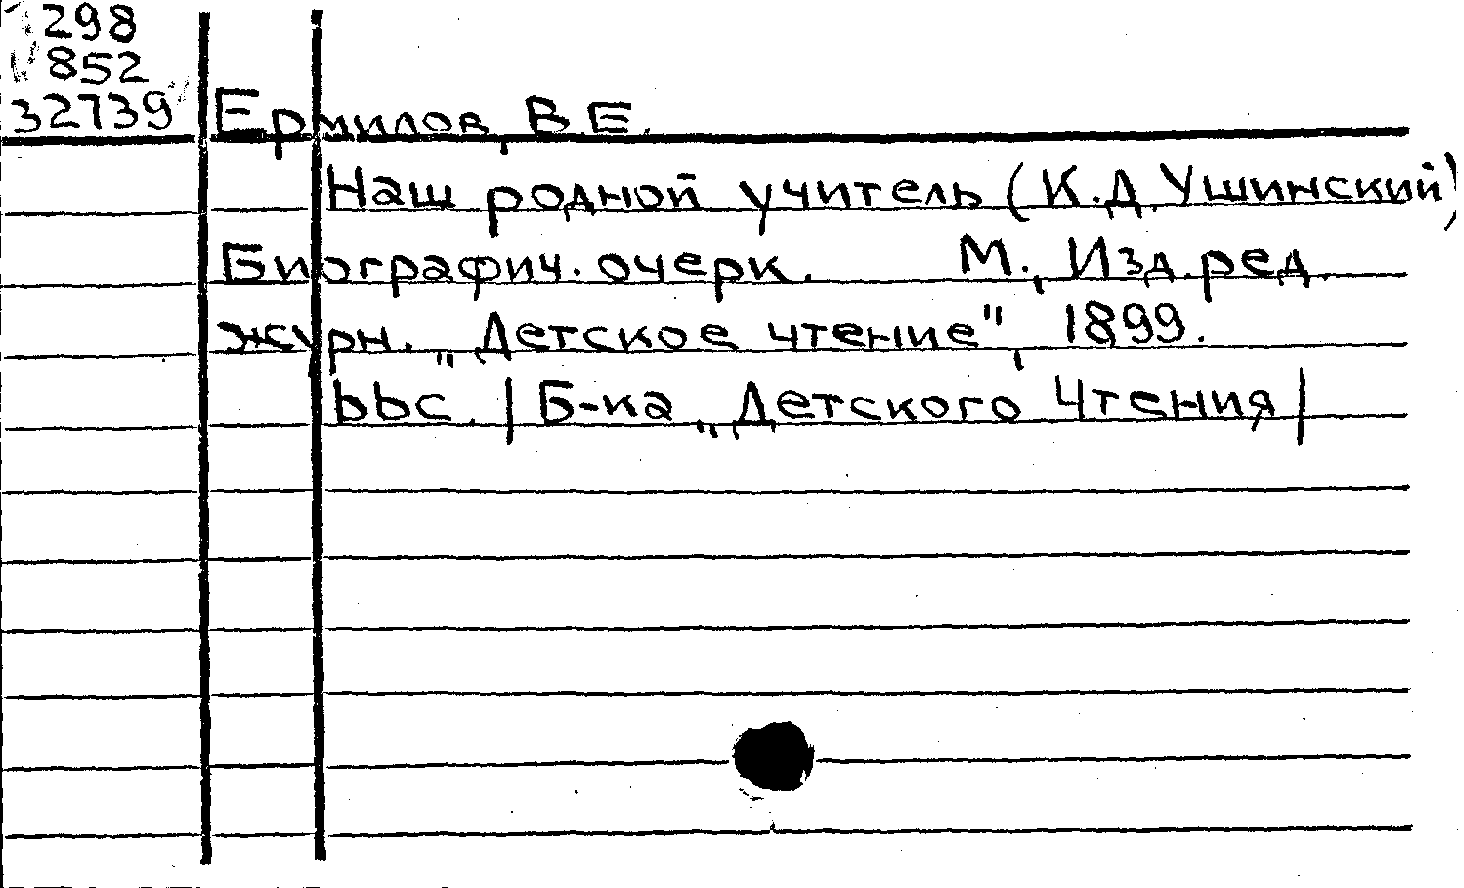 298
852
32739
Ермилов, В.Е.
Наш родной учитель (К.Д. Ушинский)
Биографич. очерк. М., Изд. ред.
журн. „Детское чтение", 1899.
ььс. | Б-ка „Детского Чтения |